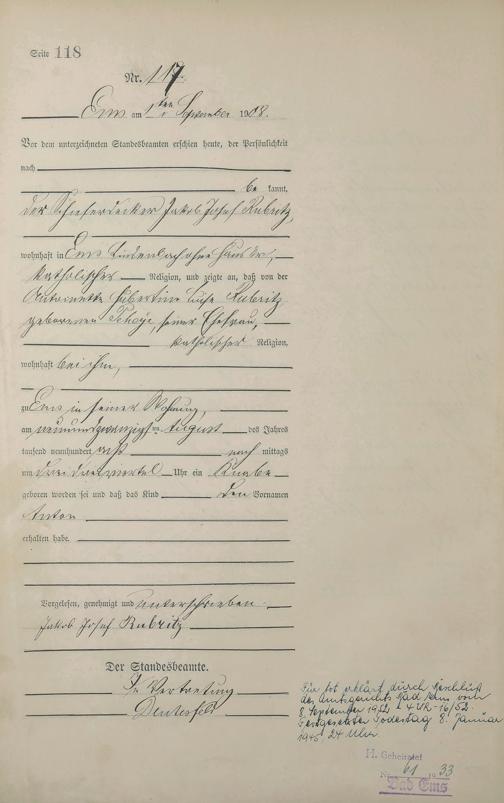 Seite 118
Nr. 117.
Ems am 1ten September 1908.
Vor dem unterzeichneten Standesbeamten erschien heute, der Persönlichkeit
nach
be kannt,
der Schieferdecker Jakob Josef Rubritz,
wohnhaft in Ems Lindenbach ohne Haus Nr,
katholischer Religion, und zeigte an, daß von der
Antoinette Hubertine Luise Rubritz,
geborenen, seiner Ehefrau,
katholischer Religion,
wohnhaft bei ihm,
zu Ems in seiner Wohnung,
am neunundzwanzigsten August des Jahres
tausend neunhundert acht nach mittags
um drei dreiviertel Uhr ein Knabe
geboren worden sei und daß das Kind den Vornamen
Anton
erhalten habe.
Vorgelesen, genehmigt und unterschrieben
Jakob Josef Rubritz
Der Standesbeamte.
In Vertretung
Für tot erklärt durch Beschluß
des Amtsgerichts Bad Ems vom
8. September 1952 - 4 UR - 16/52.
Festgesetzter Todestag 8. Januar
1945 24 Uhr.
H. Geheiratet
Nr. 61 1933
Bad Ems